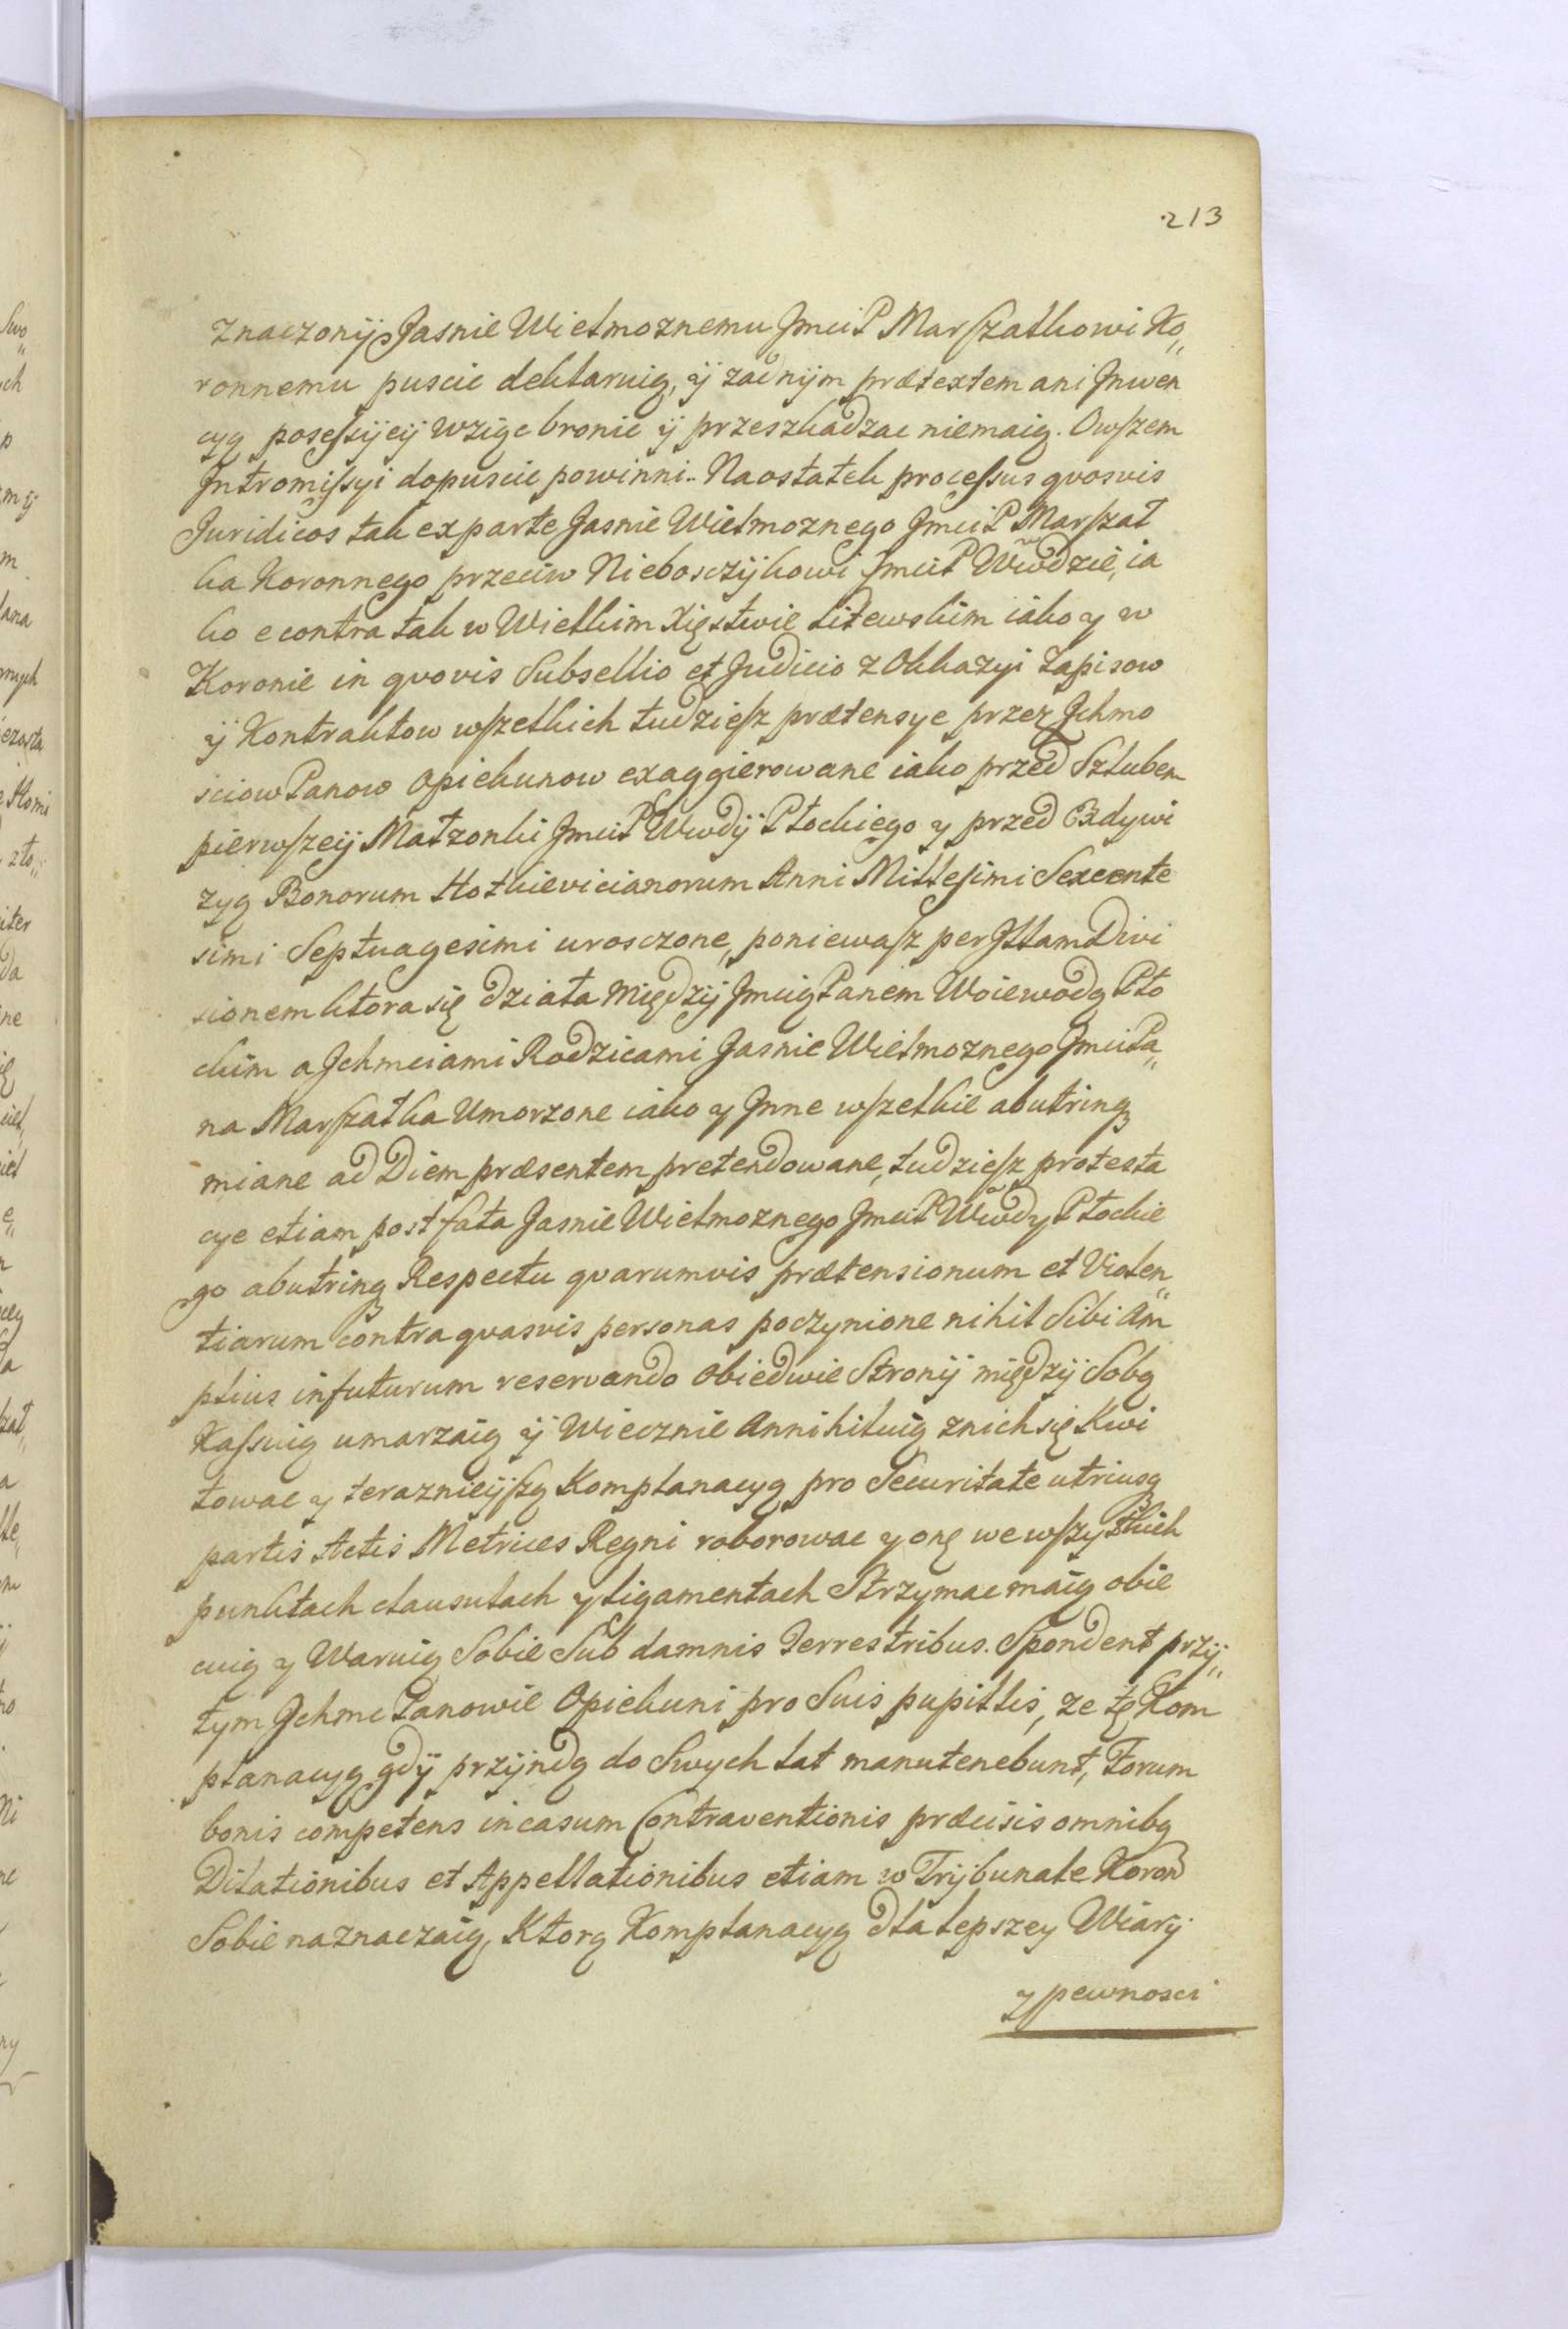 213
znaczonÿ Jasnie Wielmoznemu Jmci P Marszałkowi Ko„
ronnemu puscic deklaruią, ÿ zadnÿm prætextem ani Jnwen
cyą posessÿeÿ wziąc bronic ÿ przeszkadzac niemaią. Owszem
Jntromissyi dopuscic powinni. Naostatek processus qvosvis
Juridicos tak ex parte Jasnie Wielmoznego Jmci P Marszał
ka Koronnego przeciw Nieboszczÿkowi Jmci P Wwdzie, ia
ko econtra tak w Wielkim Xięstwie Litewskim iako y w
Koronie in qvovis Subsellio et Judicio z Okkazyi Zapisow
ÿ Kontraktow wszelkich tudziesz prætensye przez Jchmo
sciow Panow Opiekunow exaggierowane iako przed Szlubem
pierwszeÿ Małzonki Jmci P Wwdÿ Płockiego y przed Exdywi
zyą Bonorum Hotkievicianorum Anni Millesimi Sexcente
simi Septuagesimi uroszczone, poniewasz per Jllam Divi
sionem ktora się działa międzÿ Jmcią Panem Woiewodą Pło
ckim a Jchmciami Rodzicami Jasnie Wielmoznego Jmci Pa„
na Marszałka Umorzone iako y Jnne wszelkie abutrinq
miane ad Diem præsentem pretendowane, tudziesz protesta
cye etiam post fata Jasnie Wielmoznego Jmci P Wwdy Płockie
go abutrinq Respectu qvarumvis prætensionum et Violen„
tiarum contra qvasvis personas poczynione nihil Sibi Am
plius infuturum reservando Obiedwie Stronÿ międzÿ Sobą
Kassuią umarzaią ÿ Wiecznie Annihiluią znich się Kwi
towac y teraznieÿszą Komplanacyą pro Securitate utriusq
partis Actis Metrices Regni roborowac y onę we wszystkich
punktach clausulach y ligamentach Strzymac maią obie
cuią y Waruią Sobie Sub damnis Terrestribus. Spondent przÿ„
tym Jchmc Panowie Opiekuni pro Suis pupillis, ze tę Kom
planacyą gdÿ przÿndą do Swych lat manutenebunt, Forum
bonis competens incasum Contraventionis præcisis omnibq
Dilationibus et Appellationibus etiam w Trÿbunale Koron
Sobie naznaczaią, Ktorą Komplanacyą dla lepszey Wiarÿ
y pewnosci